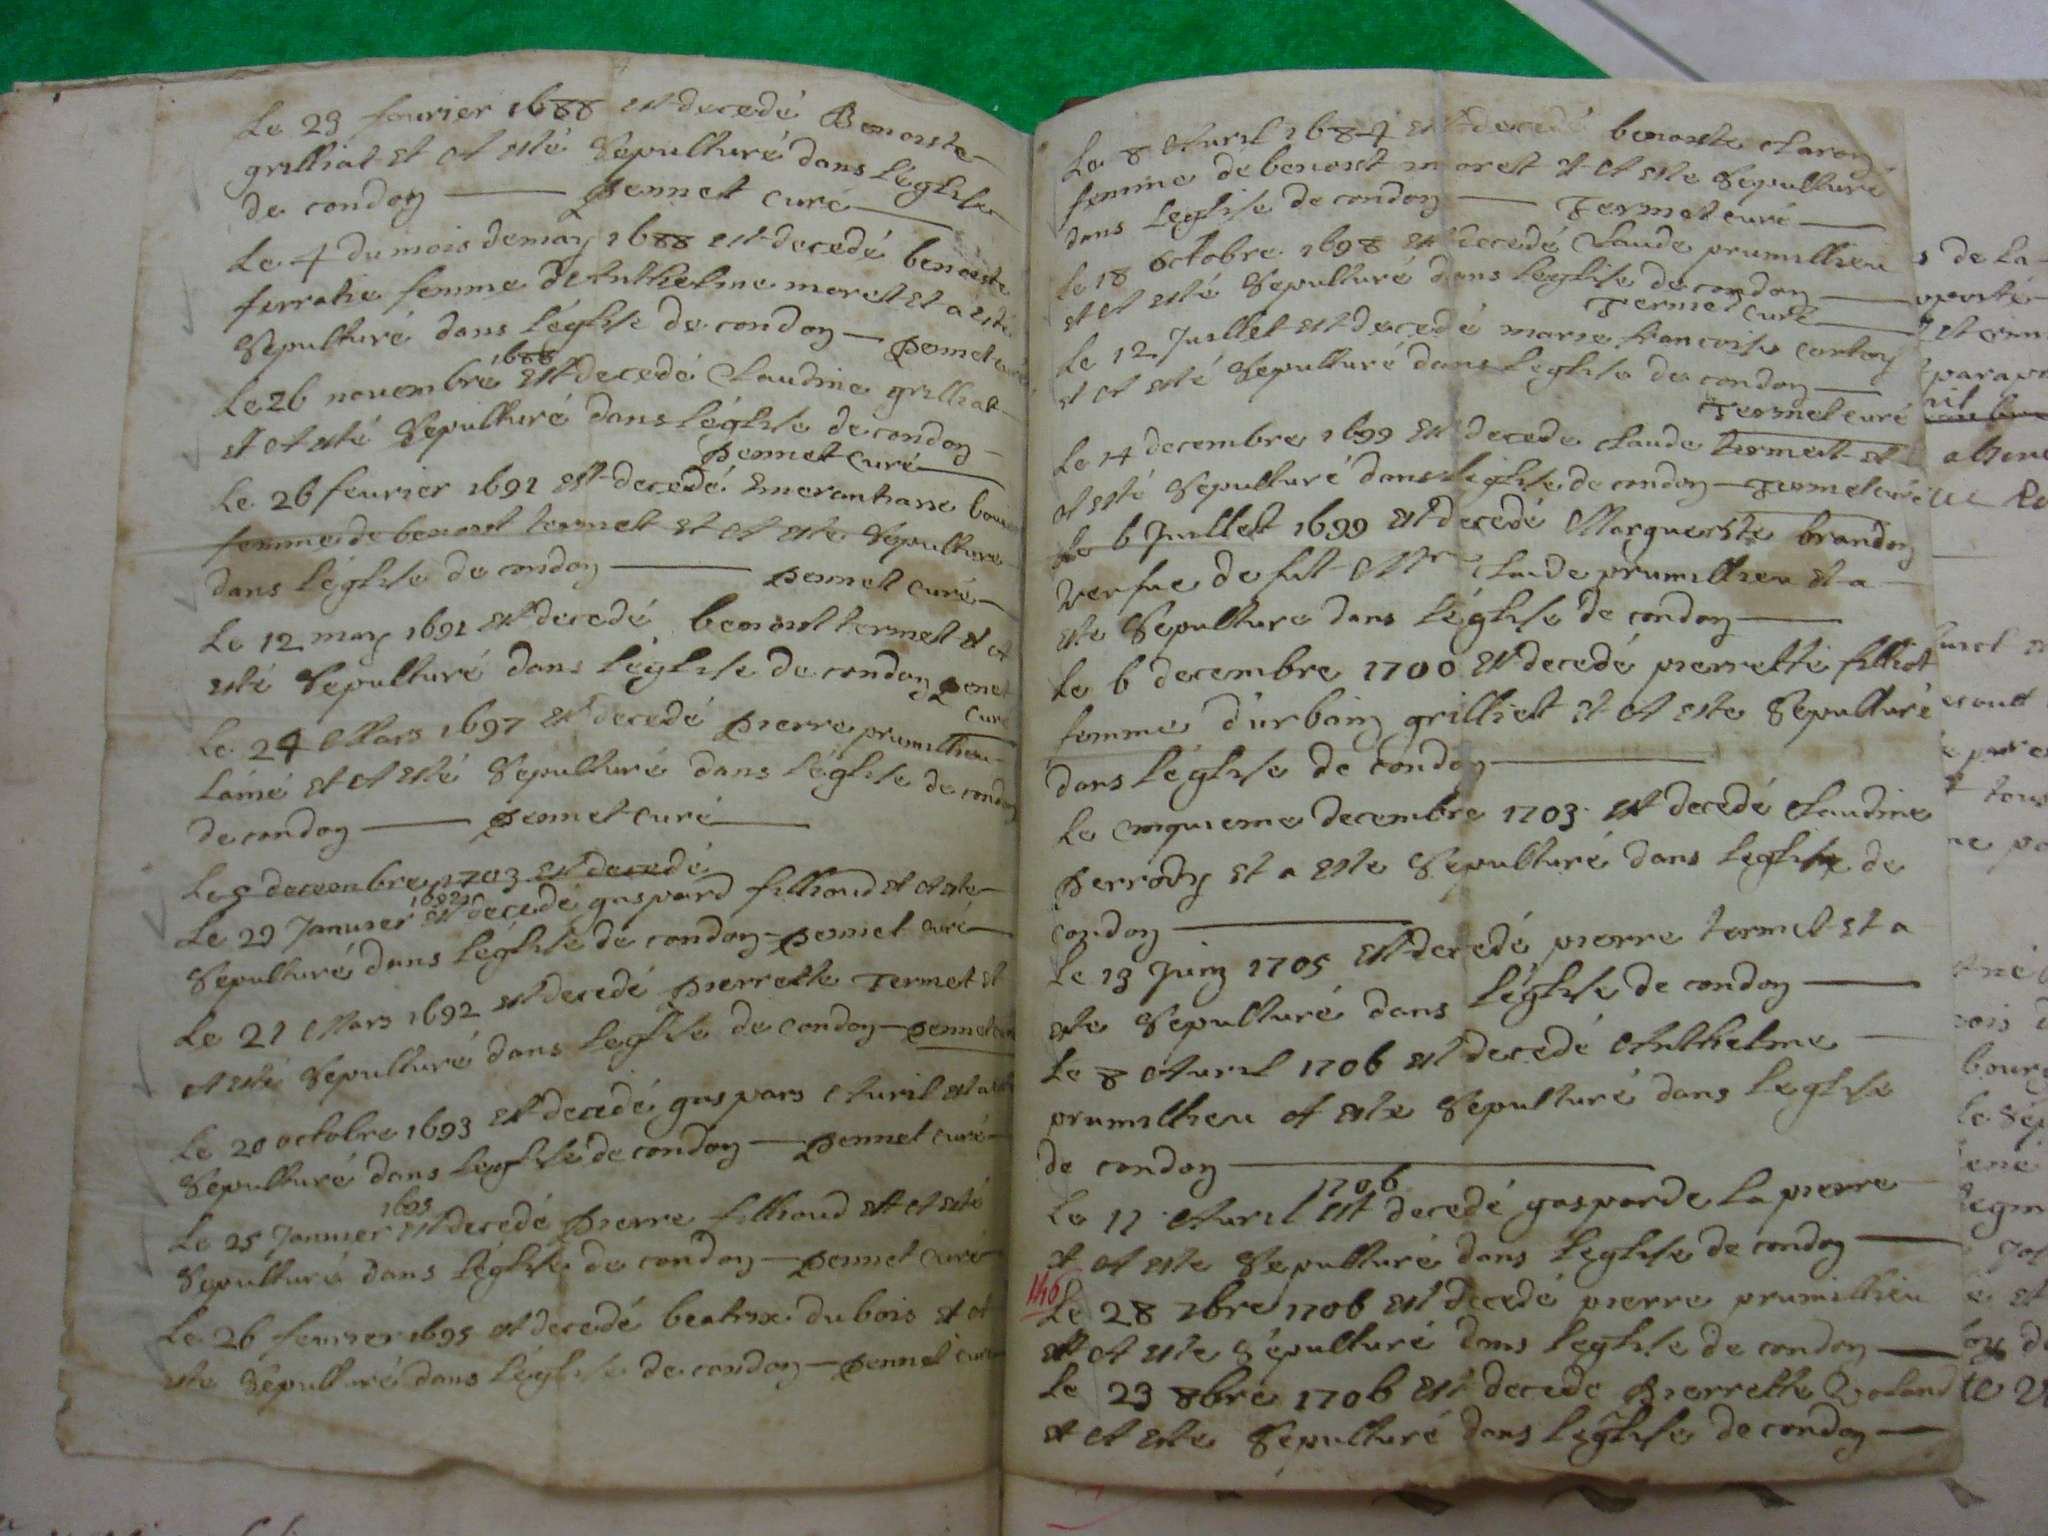 Le 29 feurier 1688 est decedé Benoiste
grilliat et at esté Sepulturé dans léglise
de condon Pennet curé
Le 4 du mois de may 1688 est decedé benoiste
ferratie femme dAnthelme moret et a esté
Sepulturé dans léglise de condon Pennet curé
1688
Le 26 novembre est decedé Claudine grilliat
et at esté Sepulturé dans léglise de condon
Pennet curé
Le 26 feurier 1691 est decedé Emerantiane
femme de benoist termet et at este Sepulture
dans léglise de condon Pennet curé
Le 12 may 1691 est decedé benoist termet et at
esté Sepulturé dans léglise de condon Penet
curé
Le 24 Mars 1697 est decedé Pierre prumillieu
lainé et at esté Sepulturé dans léglise de condon
de condon Pennet curé
Le 5 decembre 1703 est decedé
Le 29 Januier est decedé gaspard fillioud et at este
Sepulturé dans léglise de condon Pennet curé
Le 21 Mars 1692 est decedé Pierrette Termet et
at esté Sepulturé dans leglise de condon Pennet curé
Le 20 octobre 1693 est decedé gaspars Auril et at esté
Sepulturé dans leglise de condon Pennet curé
1695
Le 25 Januier est decedé Pierre fillioud et at esté
Sepulturé dans léglise de condon Pennet curé
Le 26 feurier 1695 est decedé beatrix dubois et at
este Sepulturé dans léglise de condon Pennet curé
Le 8 Auril 1684 est decedé benoiste Claron
femme de benoist moret et at este Sepulturé
dans leglise de condon Termet curé
Le 18 octobre 1698 est decedé Claude prumillieu
et at esté Sepulturé dans leglise de condon
Termet curé
Le 12 Juillet est decedé marie francoise
et at esté Sepulturé dans leglise de condon
Termet curé
Le 14 decembre 1699 est decede claude termet et
at esté Sepulturé dans leglise de condon Termet curé
Le 6 Juillet 1699 est decedé Marguerite brandon
verfue de fut Mr Claude prumillieu et a
esté Sepulture dans léglise de condon
Le 6 decembre 1700 est decedé pierrette filliot
femme d'urbain grilliet et at este Sepulturé
dans léglise de condon
Le cinquieme decembre 1703 est decedé Claudine
Perrody et a este Sepulturé dans leglise de
condon
Le 13 Juin 1705 est decedé pierre termet et a
este Sepulturé dans léglise de condon
Le 8 Auril 1706 est decedé Anthelme
prumillieu at este Sepulturé dans leglise
de condon
1706
Le 11 Auril est decedé gasparde Lapierre
et at este Sepulturé dans léglise de condon
146
Le 28 7bre 1706 est decedé pierre prumillieu
et at este Sépulturé dans leglise de condon
Le 23 8bre 1706 est decede Pierrette
et at este Sepulturé dans léglise de condon